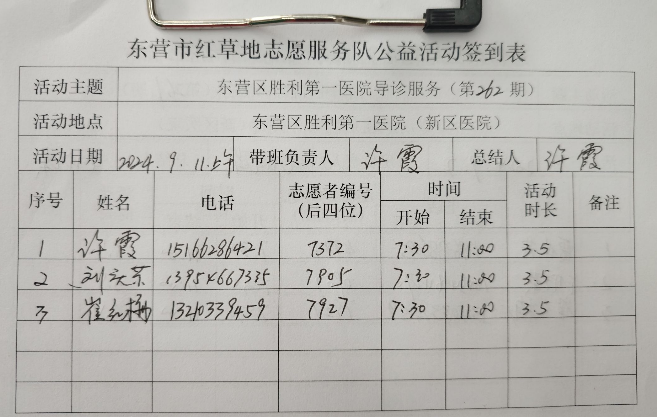 东营市红草地志愿服务队公益活动签到表
活动主题 东营区胜利第一医院导诊服务（第262期）
活动地点 东营区胜利第一医院（新区医院）
活动日期 2024.9.11上午 带班负责人 许霞 总结人 许霞
序号 姓名 电话 志愿者编号（后四位） 时间 开始 结束 活动时长 备注
1 许霞 15166286421 7372 7:30 11:00 3.5
2 刘 13954667335 7905 7:30 11:00 3.5
3 崔红梅 13210339459 7927 7:30 11:00 3.5